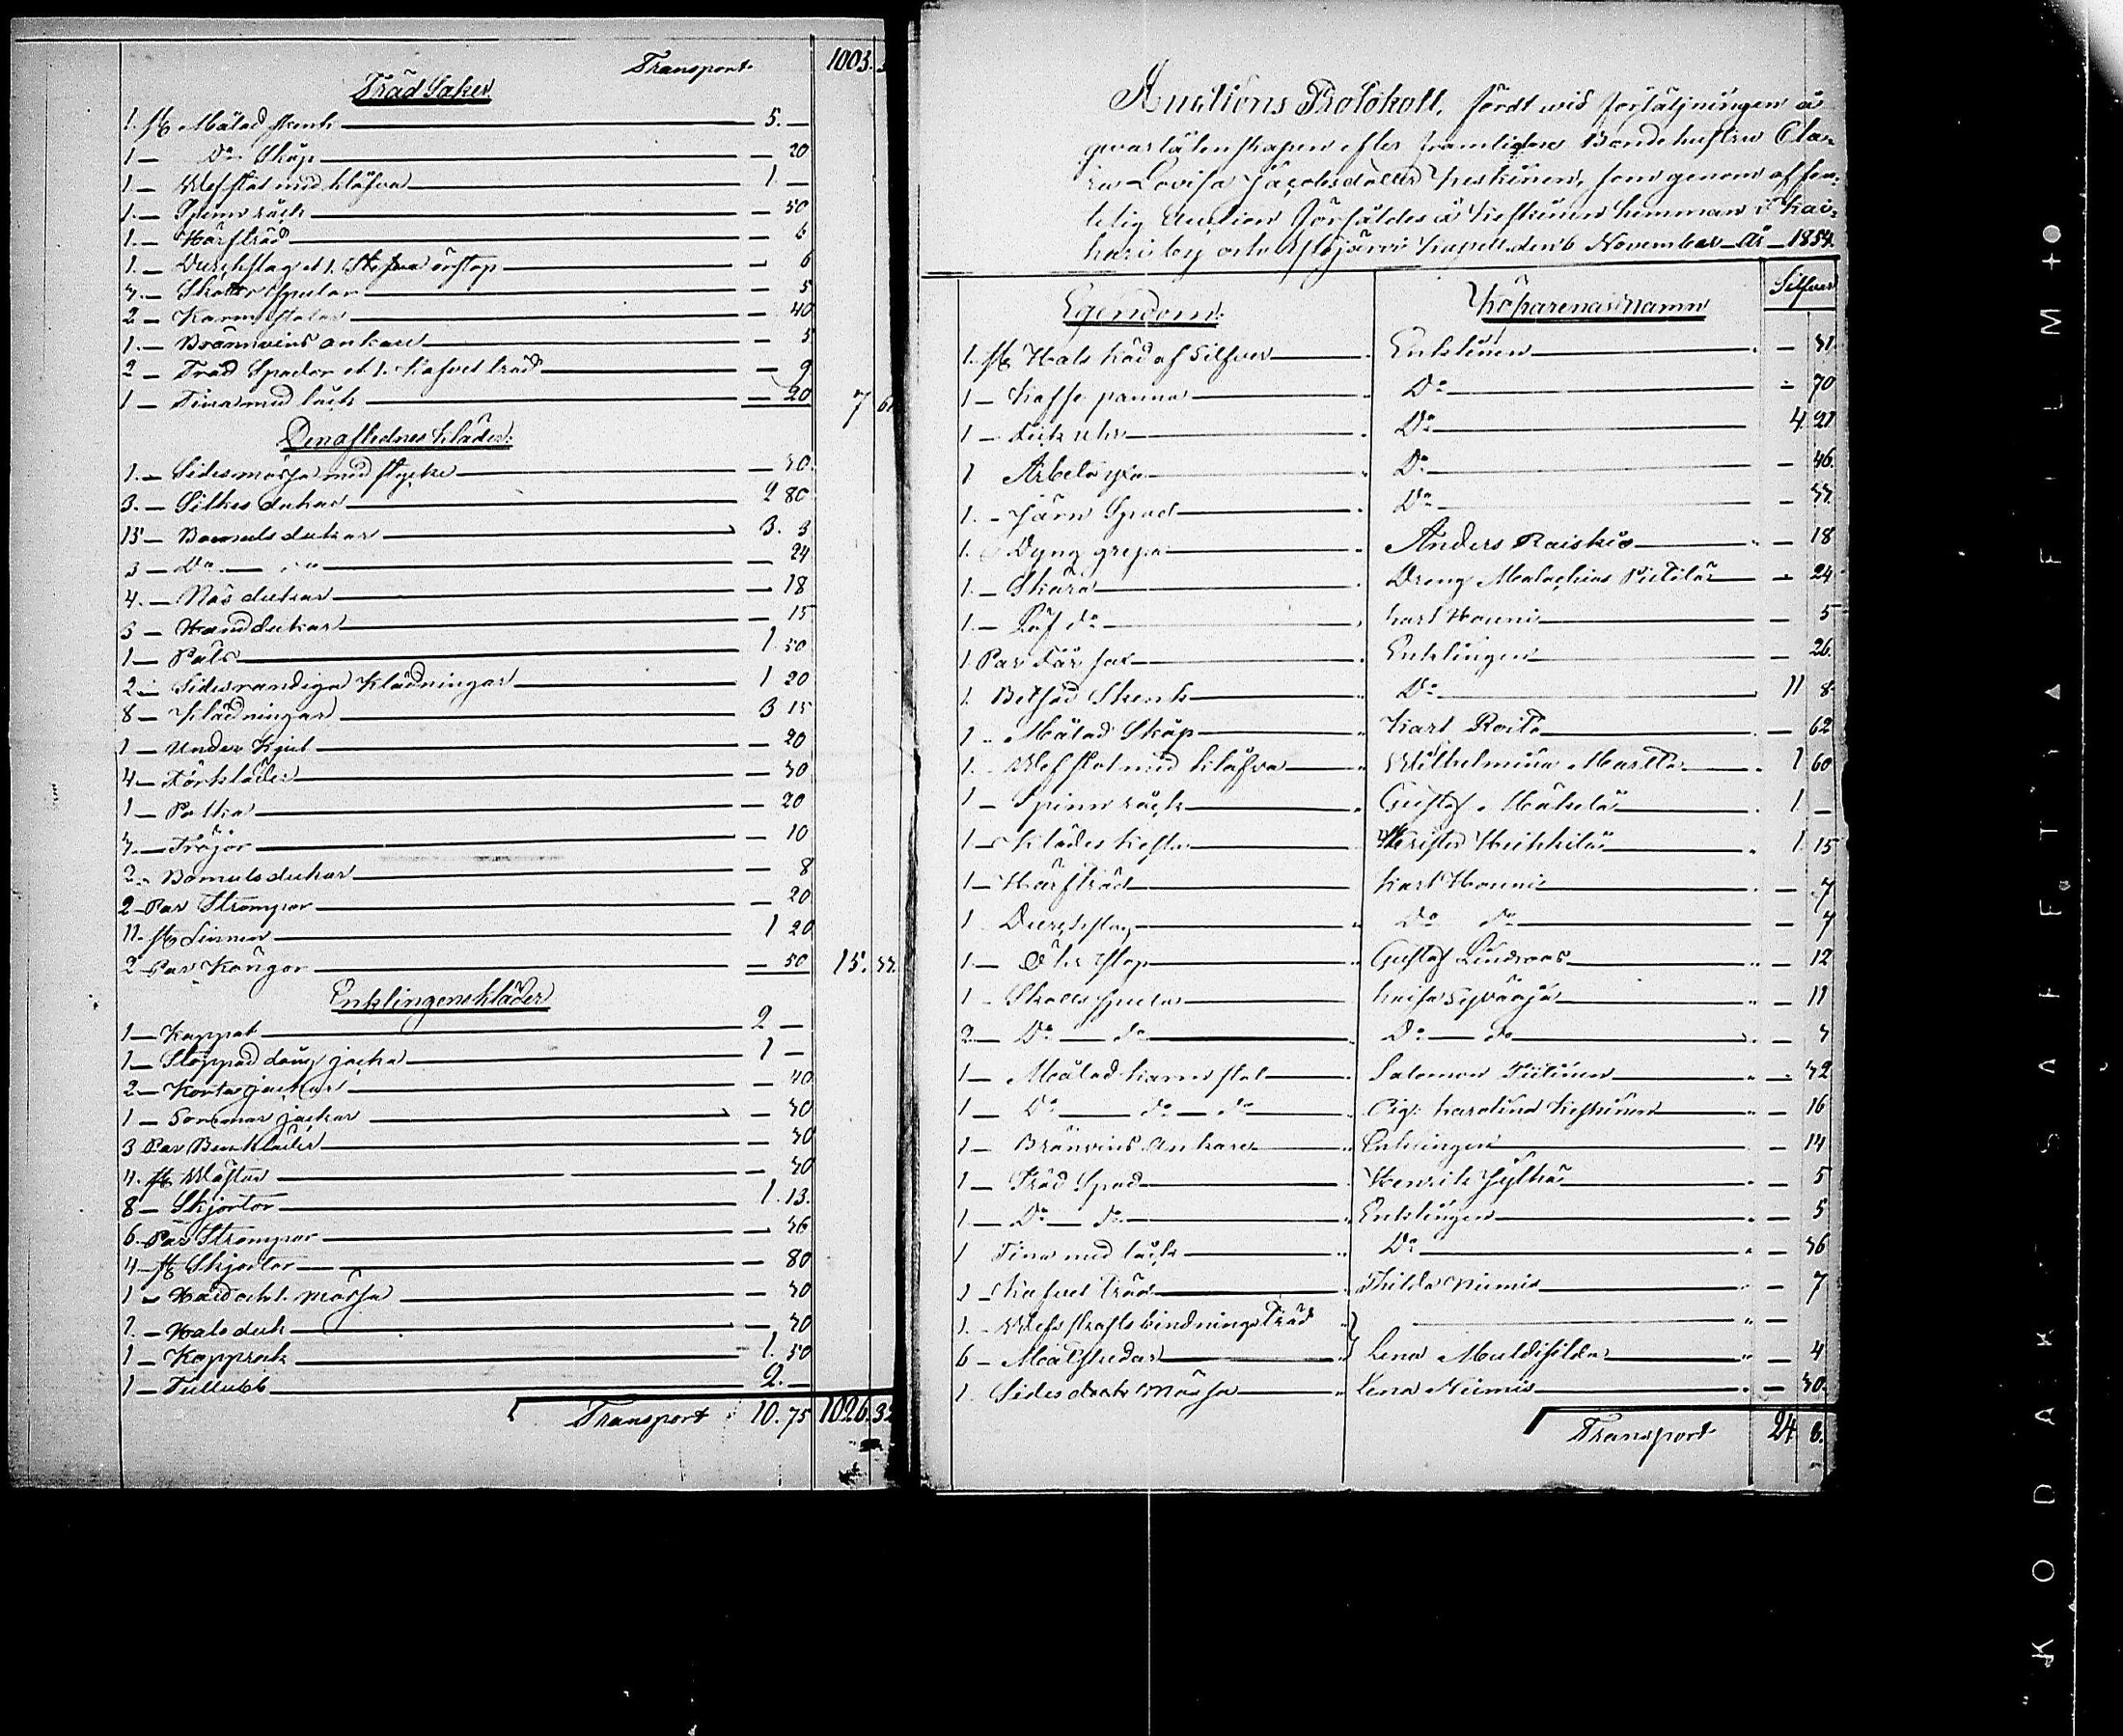 Transport 1003.
Träd Saker
1. st Målad skenk 5. —
1 — Do Skåp — 20
1 — Wefstol med klåfva 1. —
1. — Spinn råck — 50
1. — Härfträd — 6
1. — Durchslag et 1. örstop — 6
— 5
2 — Karmstolar — 40
1. — Brännvins ankare — 5
2 — Träd Spador et 1. Kafvel träd — 9
1 — Tina med låck — 20 7 61
Den aflednes kläder:
1. — Sidesmössa med stycke — 30
3. — Silkes dukar 2 80
15 — Bomuls dukar 3. 3
3 — Do — do — 24
4. — Näs dukar — 18
3 — Handdukar — 15
1 — Päls 1. 50
2 — Sidesrandiga Klädningar 1 20
8 — Klädningar 3 15
1 — Under Kjol — 20
4 — Förkläder — 30
1 — 20
Tröjor — 10
2. Bomulsdukar — 8
2 Par Strumpor — 20
11. st Linnen 1 20
2 Par Kängor — 50 15. 33.
Enklingens kläder
1 — Kappot 2 —
1 — Stoppad lång jacka 1 —
2 — Korta jackor — 40
1 — Sommar jackor — 30
3 Par Benkläder — 30
4. st Wästar — 30
8 — Skjortor 1. 13.
6 Par Strumpor — 36
4 st Skjortor — 80
1 — mössa — 30
1. — Hals duk — 30
1 — Kapprock 1. 50
1 — Tullubb 2. —
Transport 10. 75 1026. 32
Auctions Protokoll, fördt wid försäljningen å
qvarlåtenskapen efter framlidne Bondehustru Cla=
ra Lovisa Jacobsdotter Keskinen, som genom offen=
telig Auction försåldes å Keskinen hemman i Kai=
hari by och Ylöjärvi Kapell den 6 November År 1854.
Egendom: Köparenas namn Silfver
1. st Hals käd af Silfver Enklingen — 31.
1 — Kaffe panna Do — 70
1 — Fick uhr Do 4 21
1 Arbets yxa Do — 46.
1. — Järn Spad Do — 33.
1. Dyng grepa Anders Raiskio — 18
1. — Skära Dreng Malachias Pietilä — 24
1. — Löf do Karl Honni — 5
1. Par Får sax Enklingen — 26.
1. Betsad Skenk Do 11 8
1 — Målad Skåp Karl Roito — 62
1. — Wefstol med klåfva Wilhelmina Marttila 1 60
1 — Spinn råck Gustaf Mäkelä 1 —
1 — Klädes kista Christer Heikkilä 1. 15
1 — Härfträd Karl Honni — 7
1 Durchslag Do do — 7
1. — Öhr stop Gustaf Lindroos — 12
1 — Kaisa Syväoja — 11
2 — Do — do Do — do — 3
1 — Målad karm stol Salomon Tiilinen — 32
1 — Do — do — do Pig. Karolina Keskinen — 16
1 — Bränvins Ankare Enklingen — 14
1 — Träd Spad Henrik Jylhä — 5
1 — Do — do Enklingen — 5
1 Tina med låck Do — 36
1 — Kafvel träd Thilda Niemis — 7
1. — Wefskafts bindnings Träd
6 — Lena — 4
1. Sides mössa Lena Niemis — 30.
Transport 24 6.
KODAK SAFETY FILM